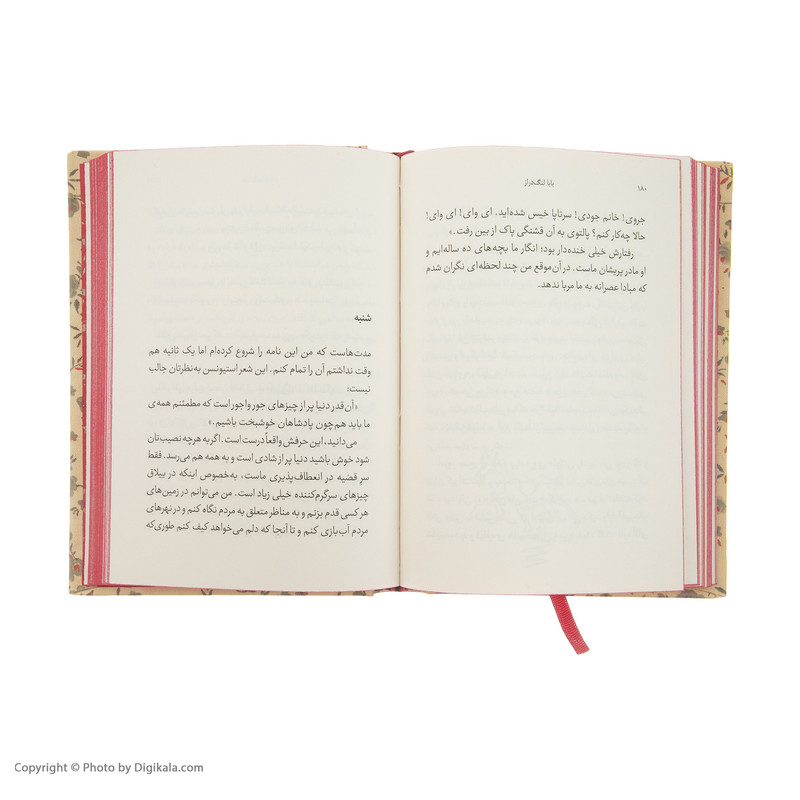 ۱۸۰
بابا لنگ‌دراز
جروی! خانم جودی! سرتاپا خیس شده‌اید. ای وای! ای وای!
حالا چه‌کار کنم؟ پالتوی به آن قشنگی پاک از بین رفت.»
رفتارش خیلی خنده‌دار بود؛ انگار ما بچه‌های ده ساله‌ایم و
او مادر پریشان ماست. در آن‌موقع من چند لحظه‌ای نگران شدم
که مبادا عصرانه به ما مربا ندهد.
شنبه
مدت‌هاست که من این نامه را شروع کرده‌ام اما یک ثانیه هم
وقت نداشتم آن را تمام کنم. این شعر استیونسن به‌نظرتان جالب
نیست:
«آن‌قدر دنیا پر از چیزهای جورواجور است که مطمئنم همه‌ی
ما باید هم‌چون پادشاهان خوشبخت باشیم.»
می‌دانید، این حرفش واقعاً درست است. اگر به هرچه نصیب‌تان
شود خوش باشید دنیا پر از شادی است و به همه هم می‌رسد. فقط
سرِ قضیه در انعطاف‌پذیری ماست، به‌خصوص اینکه در ییلاق
چیزهای سرگرم‌کننده خیلی زیاد است. من می‌توانم در زمین‌های
هر کسی قدم بزنم و به مناظر متعلق به مردم نگاه کنم و در نهرهای
مردم آب‌بازی کنم و تا آنجا که دلم می‌خواهد کیف کنم طوری‌که
Copyright © Photo by Digikala.com